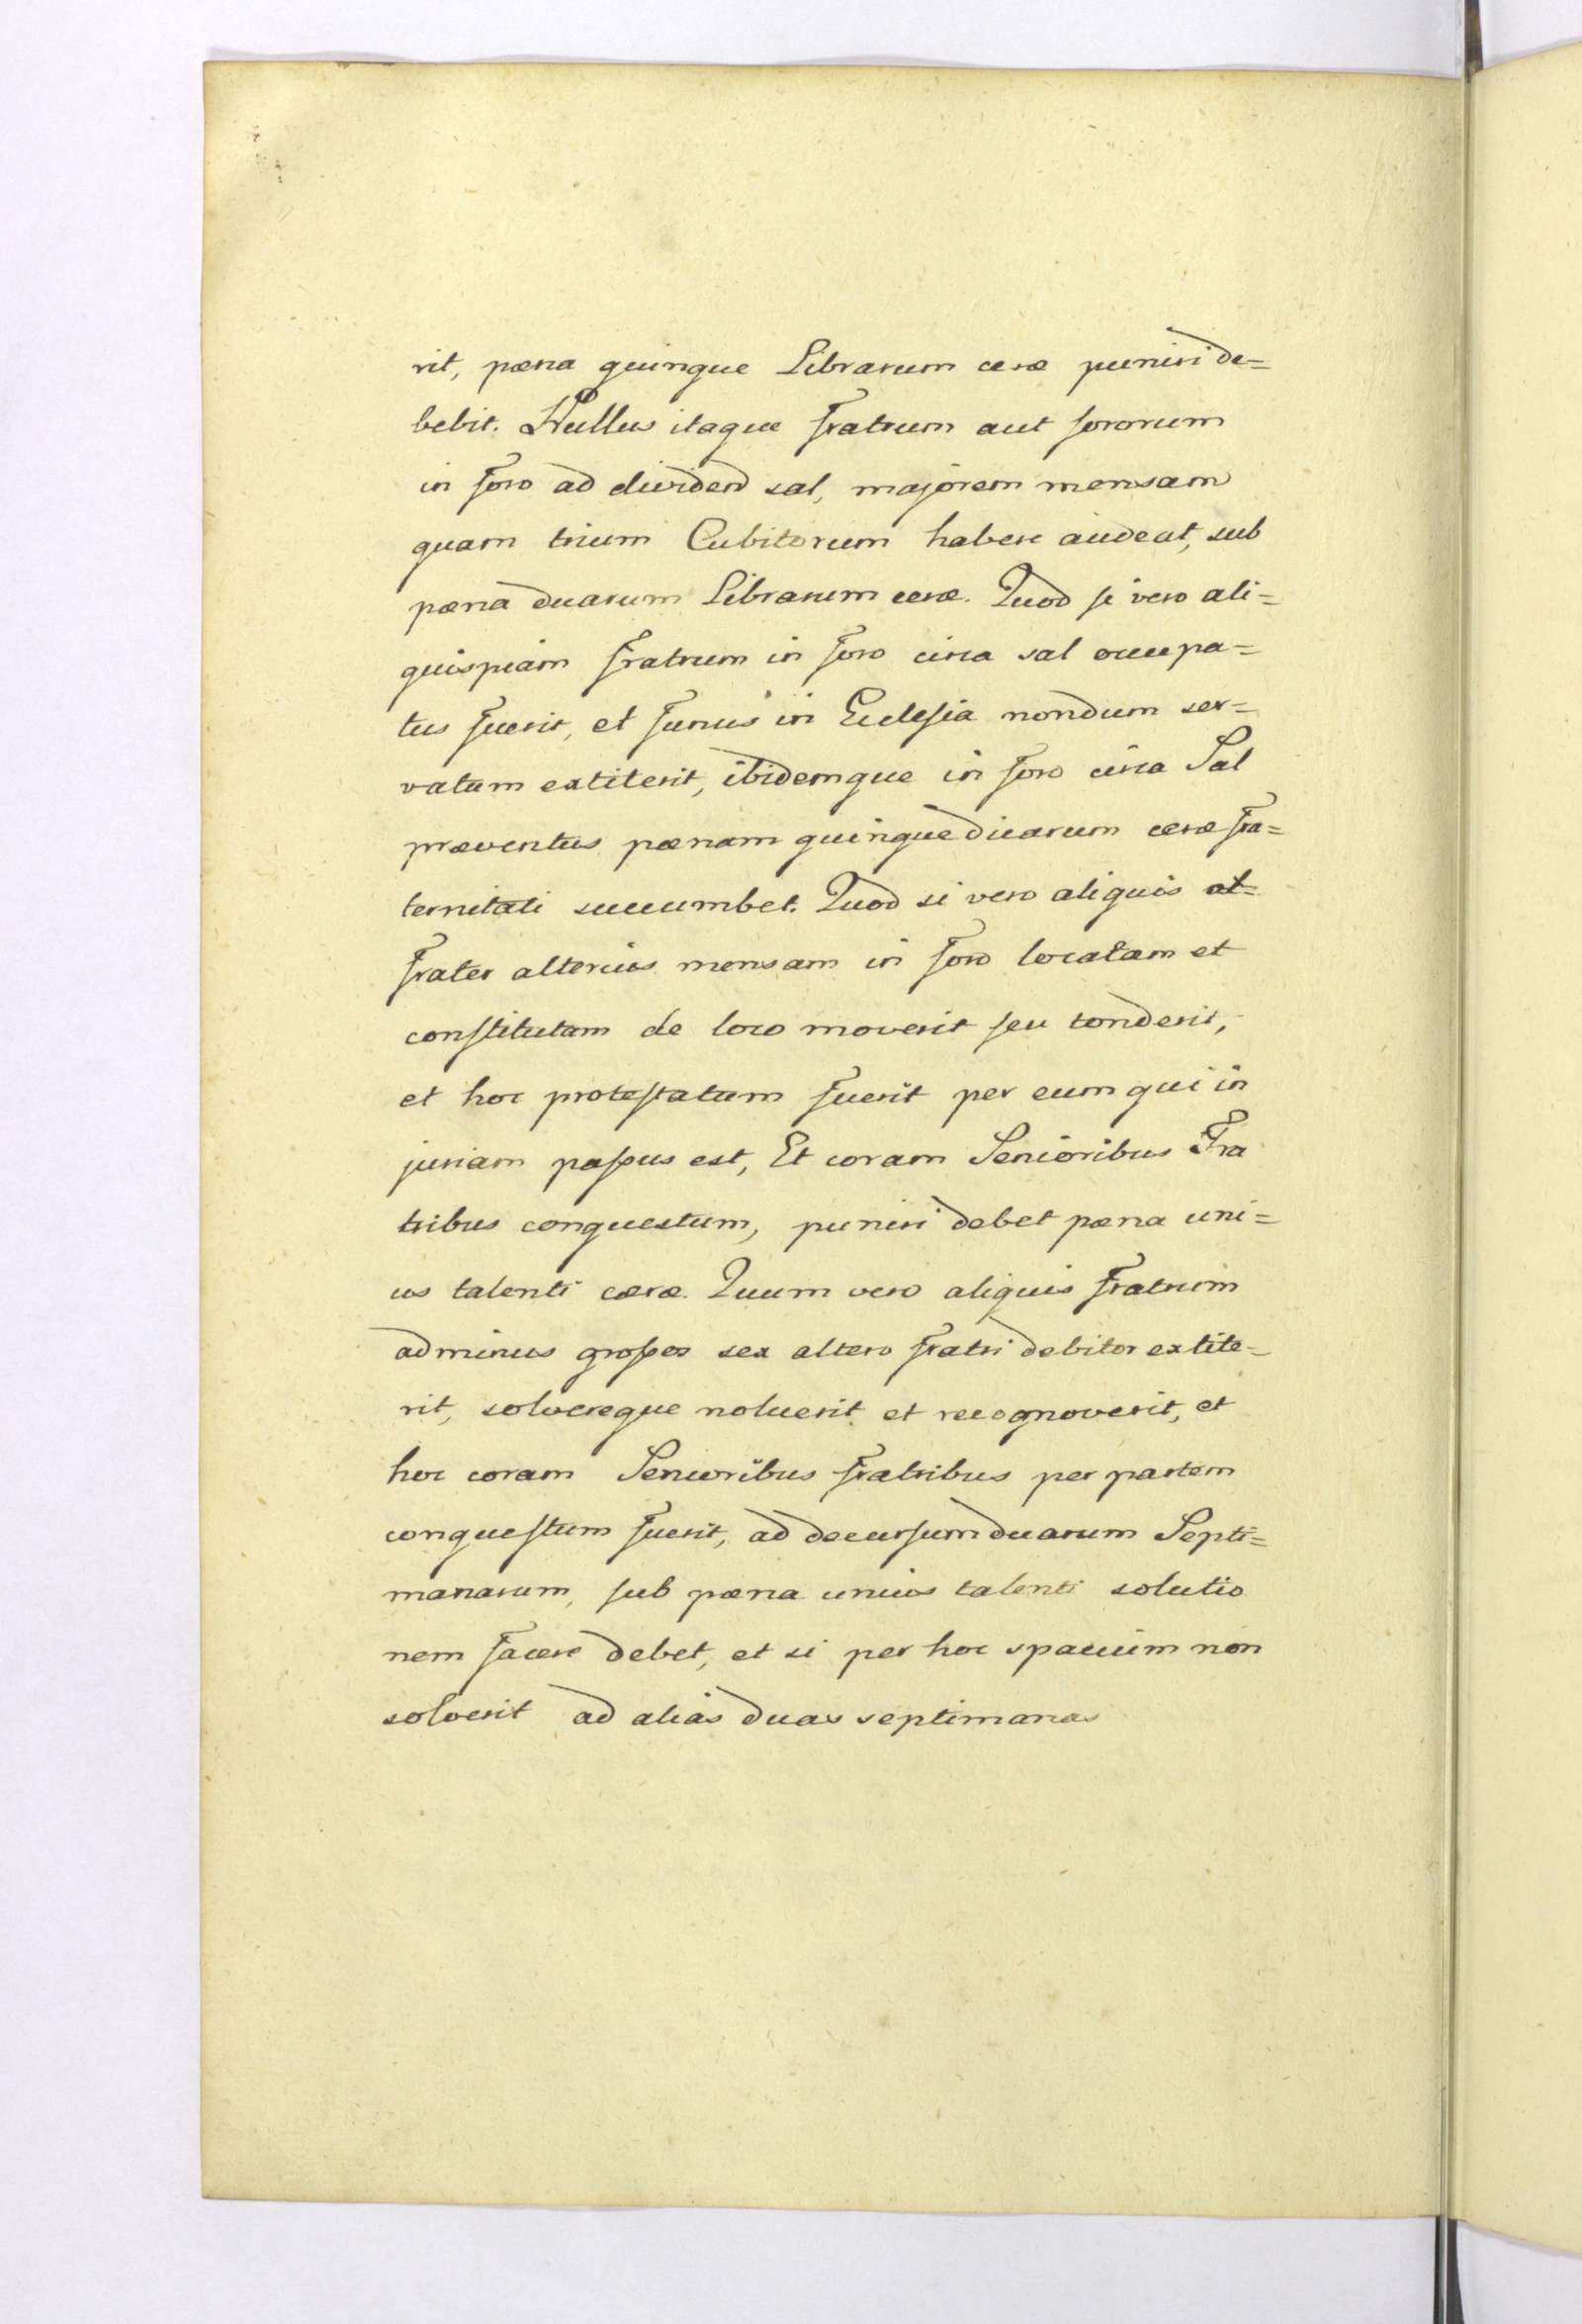 rit, pœna quinque Librarum ceræ puniri de=
bebit. Nullus itaque fratrum aut sororum
in foro ad dividend sal, majorem mensam
quam trium Cubitorum habere audeat, sub
pœna duarum Librarum ceræ. Quod si vero ali=
quispiam fratrum in foro circa sal occupa=
tus fuerit, et funus in Ecclesia nondum ser=
vatum extiterit, ibidemque in foro circa Sal
præventus pœnam quinque dicarum ceræ fra=
ternitati succumbet. Quod si vero aliquis al=
frater alterius mensam in foro locatam et
constitutam de loco moverit seu tonderit,
et hoc protestatum fuerit per eum qui in
juriam passus est, Et coram Senioribus Fra
tribus conquestum, puniri debet pœna uni=
us talenti cæræ. Quum vero aliquis fratrum
ad minus grosses sex altero fratri debitor extite=
rit, solvereque noluerit et recognoverit, et
hoc coram Senioribus fratribus per partem
conquestum fuerit, ad decursum duarum Septi=
manarum, sub pœna unius talenti solutio
nem facere debet, et si per hoc spacium non
solverit ad alias duas septimanas